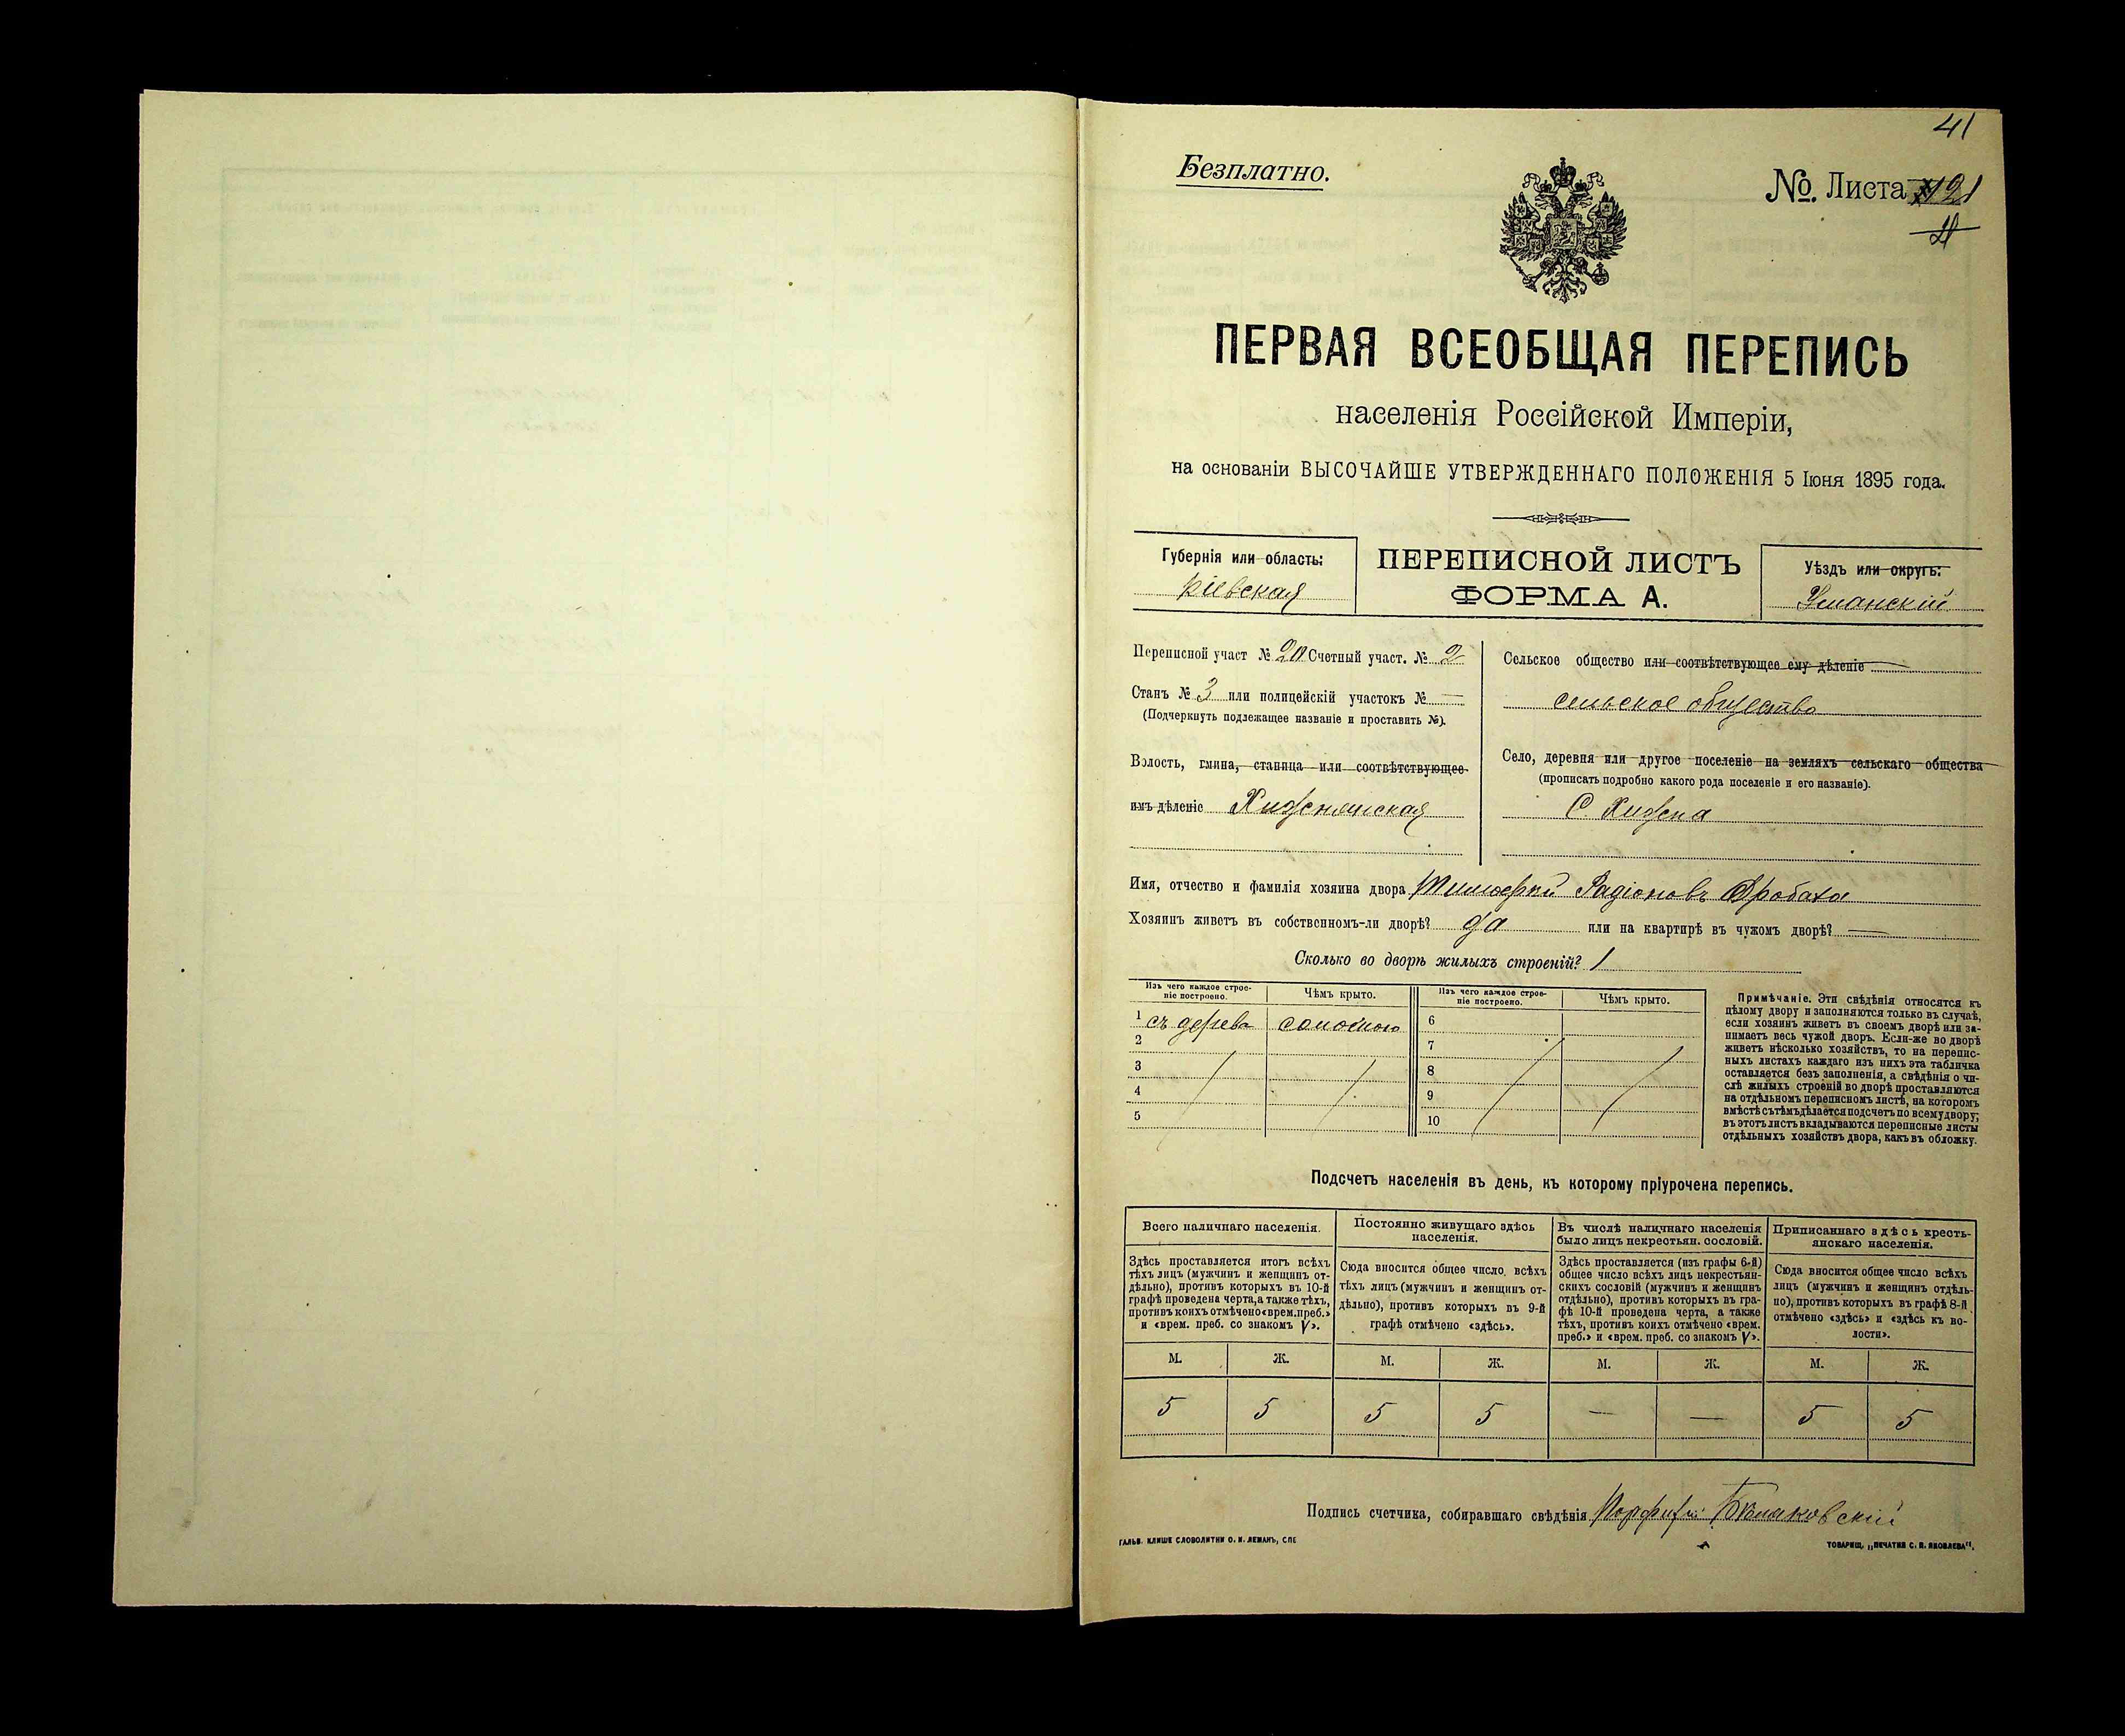 41
Безплатно.
№. Листа 21
ПЕРВАЯ ВСЕОБЩАЯ ПЕРЕПИСЬ
населенія Россійской Имперіи,
на основаніи ВЫСОЧАЙШЕ УТВЕРЖДЕННАГО ПОЛОЖЕНІЯ 5 Іюня 1895 года.
Губернія или область:
Кіевская
ПЕРЕПИСНОЙ ЛИСТЪ
ФОРМА А.
Уѣздъ или округъ:
Уманскій
Переписной участ № 20 Счетный участ. № 2
Станъ № 3 или полицейскій участокъ № —
(Подчеркнуть подлежащее названіе и проставить №).
Волость, гмина, станица или соотвѣтствующее
имъ дѣленіе Хижнянская
Сельское общество или соотвѣтствующее ему дѣленіе
сельское общество
Село, деревня или другое поселеніе на земляхъ сельскаго общества
(прописать подробно какого рода поселеніе и его названіе).
С. Хижна
Имя, отчество и фамилія хозяина двора Тимофей Радіоновъ
Хозяинъ живетъ въ собственномъ-ли дворѣ? да или на квартирѣ въ чужомъ дворѣ? —
Сколько во дворѣ жилыхъ строеній? 1
Изъ чего каждое строе-
ніе построено.
Чѣмъ крыто.
Изъ чего каждое строе-
ніе построено.
Чѣмъ крыто.
1 съ дерева соломою 6
2 7
3 8
4 9
5 10
Примѣчаніе. Эти свѣдѣнія относятся къ
цѣлому двору и заполняются только въ случаѣ,
если хозяинъ живетъ въ своемъ дворѣ или за-
нимаетъ весь чужой дворъ. Если-же во дворѣ
живетъ нѣсколько хозяйствъ, то на перепис-
ныхъ листахъ каждаго изъ нихъ эта табличка
оставляется безъ заполненія, а свѣдѣнія о чи-
слѣ жилыхъ строеній во дворѣ проставляются
на отдѣльномъ переписномъ листѣ, на которомъ
вмѣстѣ съ тѣмъ дѣлается подсчетъ по всему двору;
въ этотъ листъ вкладываются переписные листы
отдѣльныхъ хозяйствъ двора, какъ въ обложку.
Подсчетъ населенія въ день, къ которому пріурочена перепись.
Всего наличнаго населенія.
Здѣсь проставляется итогъ всѣхъ
тѣхъ лицъ (мужчинъ и женщинъ от-
дѣльно), противъ которыхъ въ 10-й
графѣ проведена черта, а также тѣхъ,
противъ коихъ отмѣчено «врем. преб.»
и «врем. преб. со знакомъ V».
Постоянно живущаго здѣсь
населенія.
Сюда вносится общее число всѣхъ
тѣхъ лицъ (мужчинъ и женщинъ от-
дѣльно), противъ которыхъ въ 9-й
графѣ отмѣчено «здѣсь».
Въ числѣ наличнаго населенія
было лицъ некрестьян. сословій.
Здѣсь проставляется (изъ графы 6-й)
общее число всѣхъ лицъ некрестьян-
скихъ сословій (мужчинъ и женщинъ
отдѣльно), противъ которыхъ въ гра-
фѣ 10-й проведена черта, а также
тѣхъ, противъ коихъ отмѣчено «врем.
преб.» и «врем. преб. со знакомъ V».
Приписаннаго здѣсь кресть-
янскаго населенія.
Сюда вносится общее число всѣхъ
лицъ (мужчинъ и женщинъ отдѣль-
но), противъ которыхъ въ графѣ 8-й
отмѣчено «здѣсь» и «здѣсь къ во-
лости».
М. Ж. М. Ж. М. Ж. М. Ж.
5 5 5 5 — — 5 5
Подпись счетчика, собиравшаго свѣдѣнія Порфирій
ГАЛЬВ. КЛИШЕ СЛОВОЛИТНИ О. И. ЛЕМАНЪ, СПБ
ТОВАРИЩ. „ПЕЧАТНЯ С. П. ЯКОВЛЕВА".